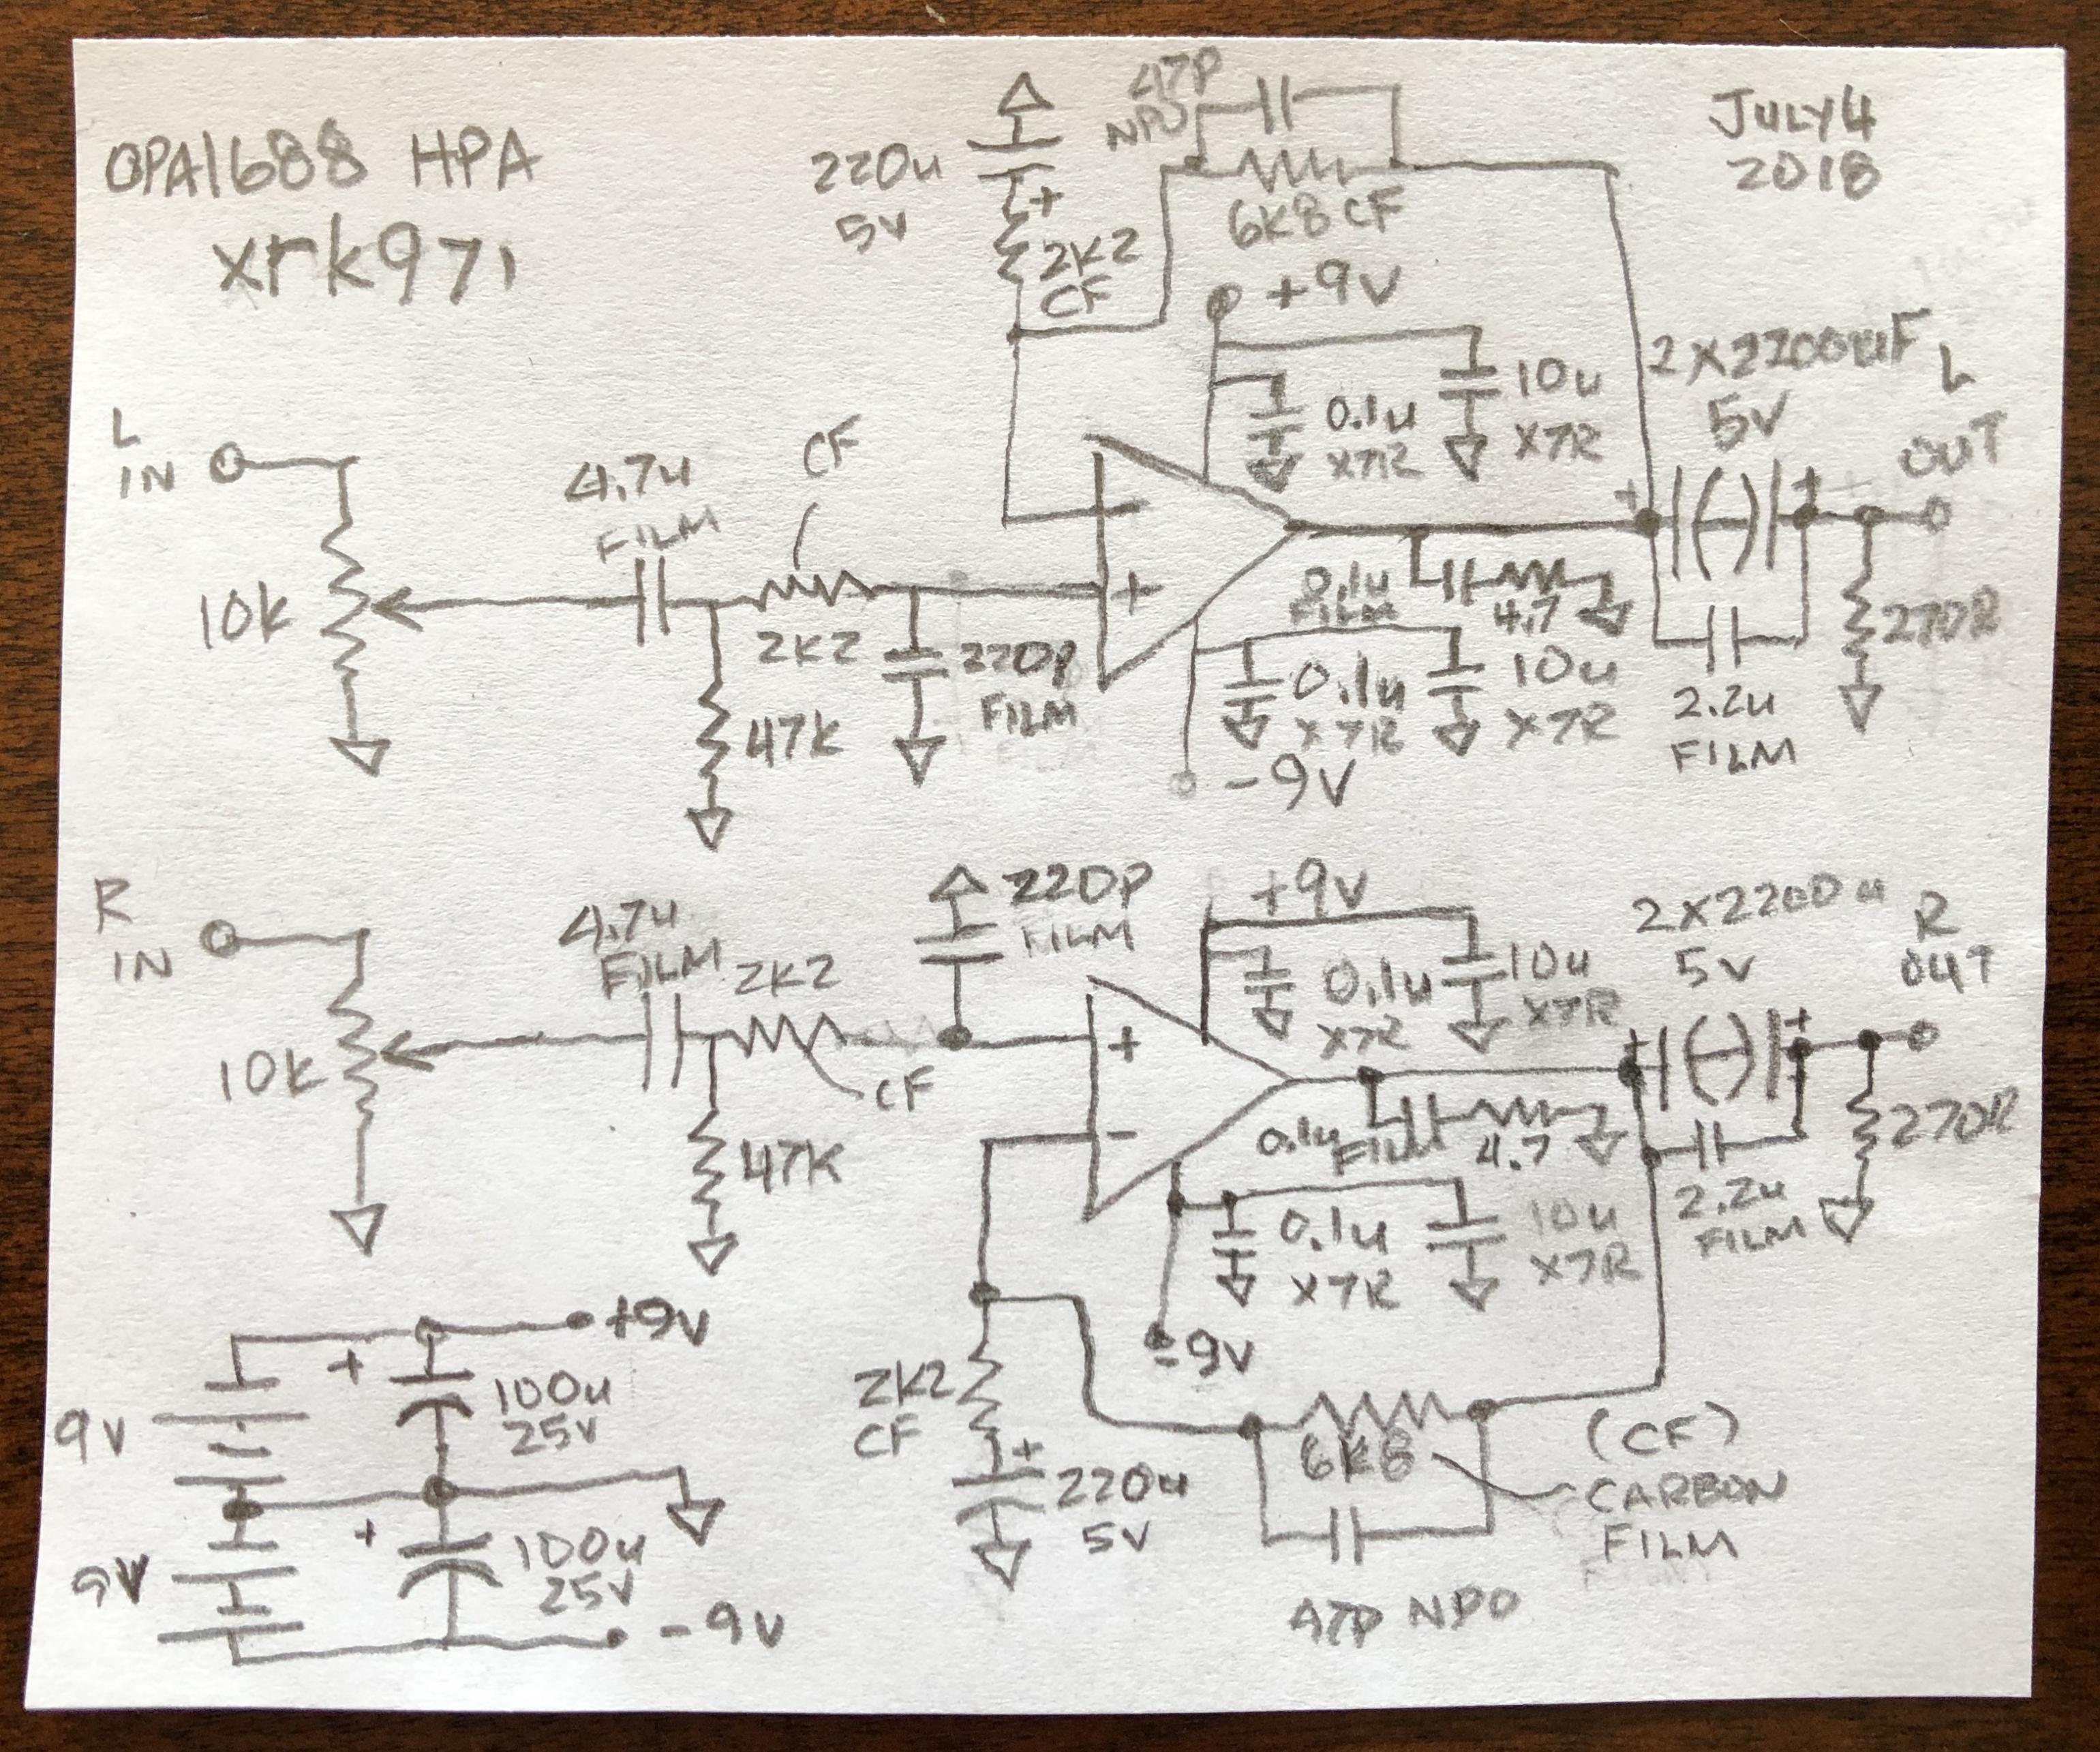 OPA1688 HPA
xrk971
JULY 4
2018
47P
NPO
220u
5V
+
2K2
CF
6K8 CF
+9V
0.1u
X7R
10u
X7R
2X2200uF
5V
L
OUT
L
IN
10K
4.7u
FILM
CF
2K2
47K
220P
FILM
-
+
0.1u
FILM
4.7
+
+
270R
2.2u
FILM
0.1u
X7R
10u
X7R
-9V
R
IN
10K
4.7u
FILM
2K2
CF
47K
220P
FILM
+
-
+9V
0.1u
X7R
10u
X7R
2X2200u
5V
R
OUT
+
+
0.1u
FILM
4.7
270R
2.2u
FILM
0.1u
X7R
10u
X7R
-9V
2K2
CF
+
220u
5V
6K8
(CF)
CARBON
FILM
47P NPO
+9V
9V
+
100u
25V
9V
+
100u
25V
-9V